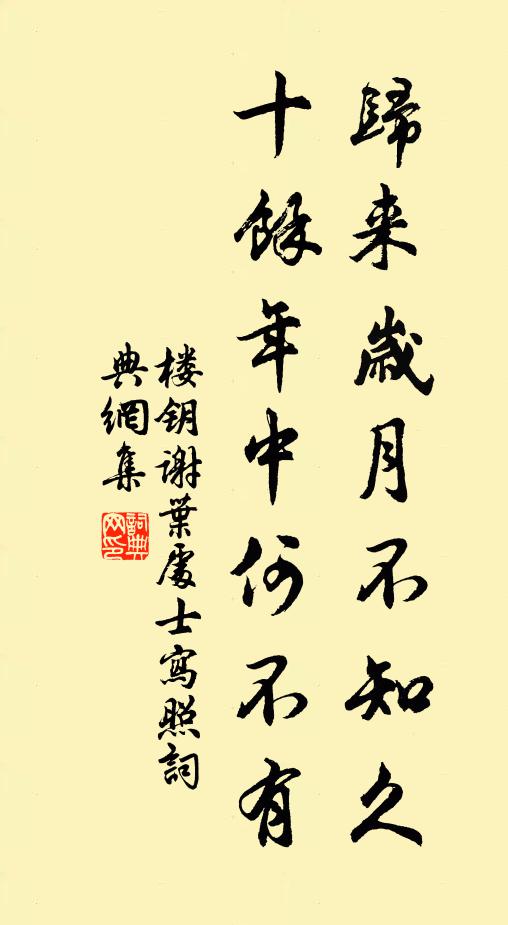 歸来歲月不知久
十餘年中何不有
楼钥谢葉處士寫照詞
典網集
詞典
网印